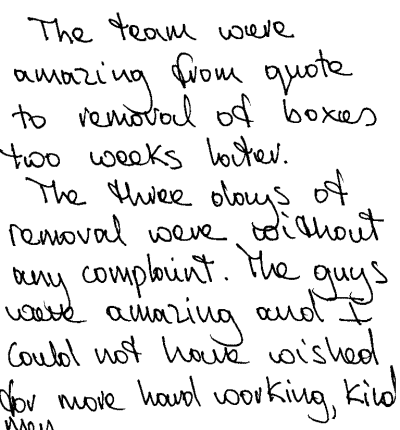 The team were
amazing from quote
to removal of boxes
two weeks later.
The three days of
removal were without
any complaint. The guys
were amazing and I
could not have wished
for more hard working, kind
men